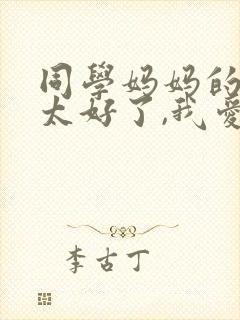 同學妈妈的
太好了,我愛
李古丁